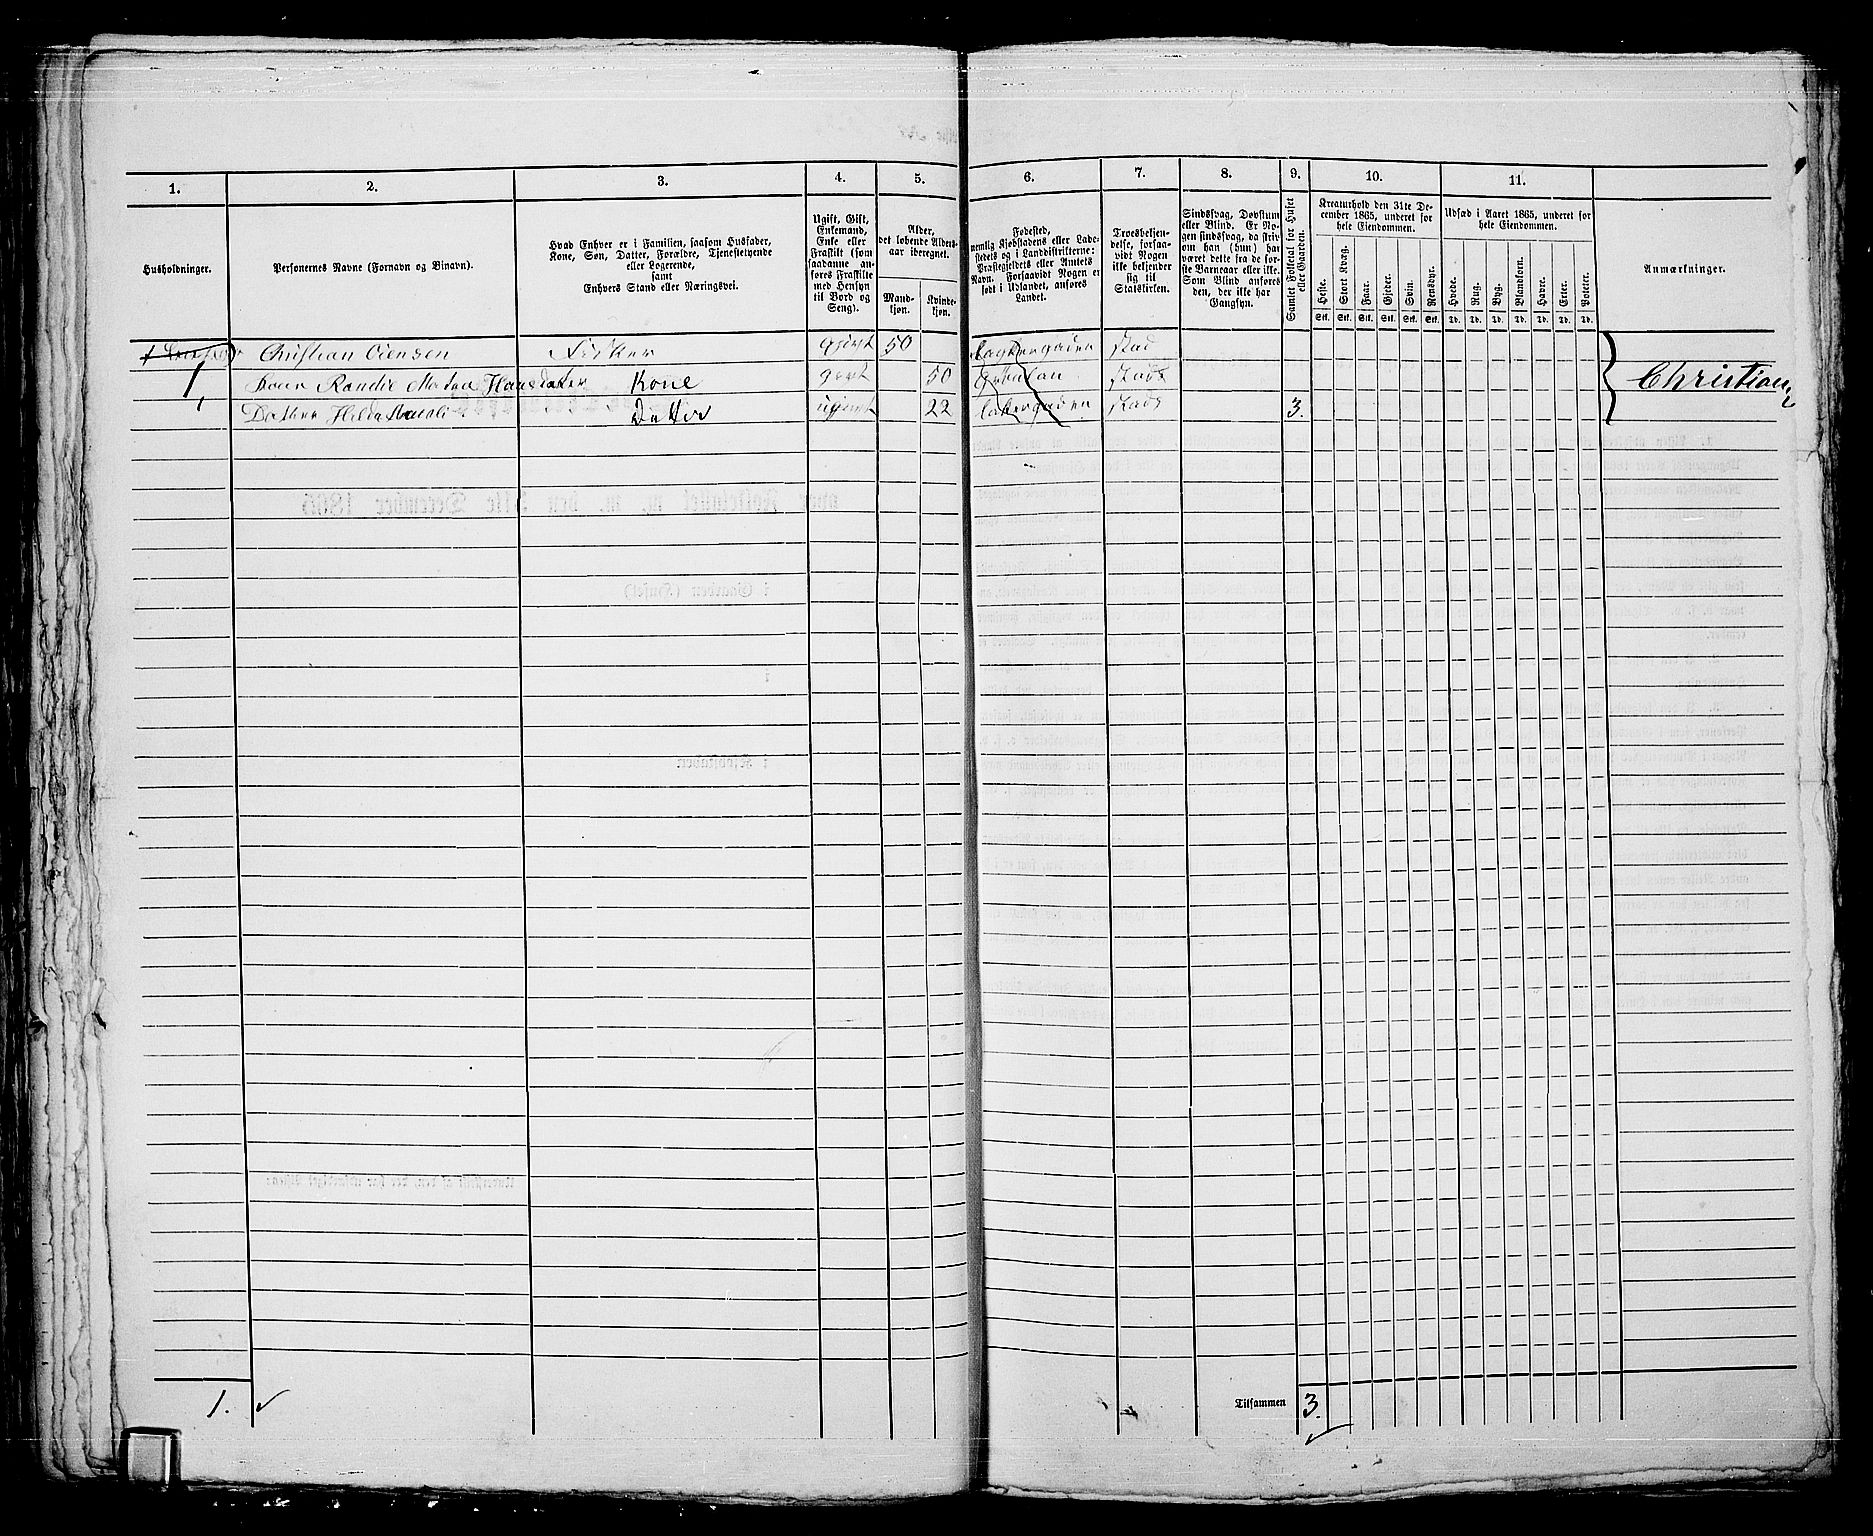 1.
2.
3.
4.
5.
6.
7.
8.
9.
10.
11.
Husholdninger.
Personernes Navne (Fornavn og Binavn).
Hvad Enhver er i Familien, saasom Husfader,
Kone, Søn, Datter, Forældre, Tjenestetyende
eller Logerende,
samt
Enhvers Stand eller Næringsvei.
Ugift, Gift,
Enkemand,
Enke eller
Fraskilt (som
saadanne an-
føres Fraskilte
med Hensyn
til Bord og
Seng).
Alder,
det løbende Alders-
aar iberegnet.
Mand-
kjøn.
Kvinde-
kjøn.
Fødested,
nemlig Kjøbstadens eller Lade-
stedets og i Landdistrikterne:
Præstegjeldets eller Annexets
Navn. Forsaavidt Nogen er
født i Udlandet, anføres
Landet.
Troesbekjen-
delse, forsaa-
vidt Nogen
ikke bekjender
sig til
Statskirken.
Sindssvag, Døvstum
eller Blind. Er No-
gen sindssvag, da skriv
om han (hun) har
været dette fra de før-
ste Barneaar eller ikke.
Som Blind anføres
den, der ikke har
Gangsyn.
Samlet Folketal for Huset
eller Gaarden.
Kreaturhold den 31te De-
cember 1865, underet for
hele Eiendommen.
Heste.
Stort Kvæg.
Faar.
Gjeder.
Svin.
Rensdyr.
Stk. Stk. Stk. Stk. Stk. Stk.
Udsæd i Aaret 1865, underet for
hele Eiendommen.
Hvede.
Rug.
Byg.
Blandkorn.
Havre.
Erter.
Poteter.
Td. Td. Td. Td. Td. Td. Td.
Anmærkninger.
Christian Oiensen Fisker 50
1, Randie Hansdater Kone 50 Christian
Datter 22 3.
1.
Tilsammen 3.